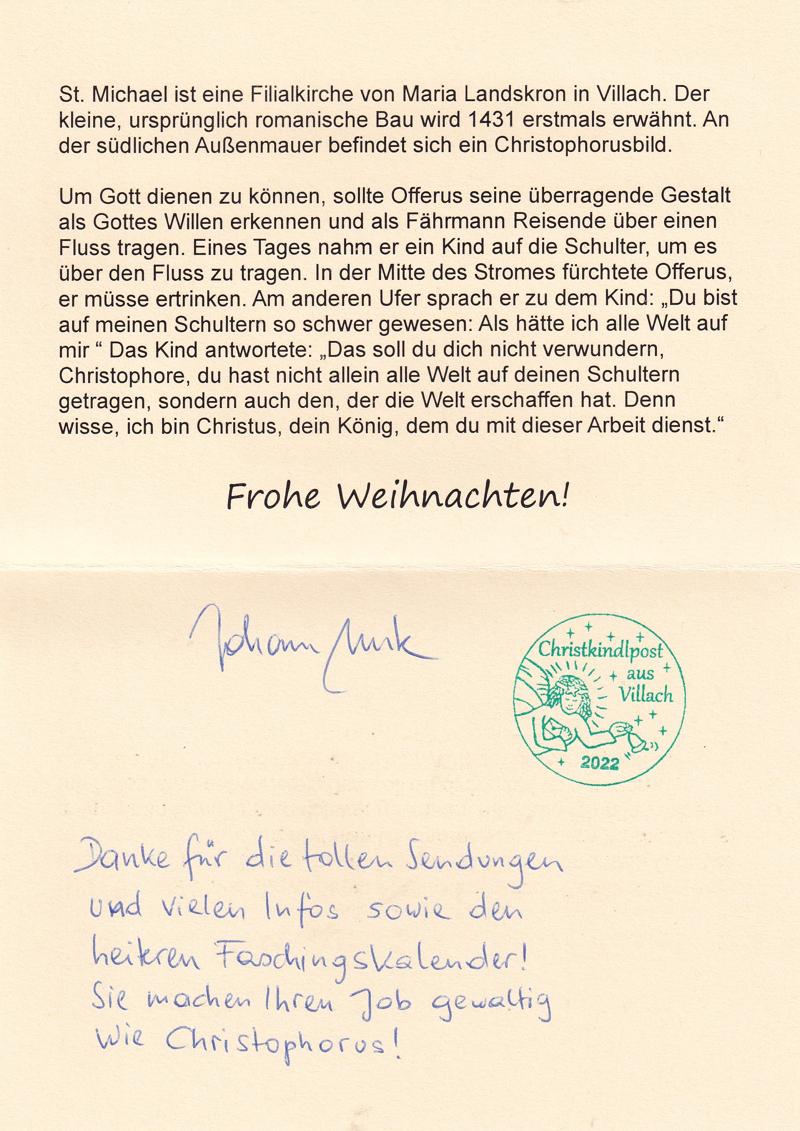 St. Michael ist eine Filialkirche von Maria Landskron in Villach. Der
kleine, ursprünglich romanische Bau wird 1431 erstmals erwähnt. An
der südlichen Außenmauer befindet sich ein Christophorusbild.
Um Gott dienen zu können, sollte Offerus seine überragende Gestalt
als Gottes Willen erkennen und als Fährmann Reisende über einen
Fluss tragen. Eines Tages nahm er ein Kind auf die Schulter, um es
über den Fluss zu tragen. In der Mitte des Stromes fürchtete Offerus,
er müsse ertrinken. Am anderen Ufer sprach er zu dem Kind: „Du bist
auf meinen Schultern so schwer gewesen: Als hätte ich alle Welt auf
mir “ Das Kind antwortete: „Das soll du dich nicht verwundern,
Christophore, du hast nicht allein alle Welt auf deinen Schultern
getragen, sondern auch den, der die Welt erschaffen hat. Denn
wisse, ich bin Christus, dein König, dem du mit dieser Arbeit dienst.“
Frohe Weihnachten!
Johann
Christkindlpost
aus
Villach
2022
Danke für die tollen Sendungen
und vielen Infos sowie den
heiteren Faschingskalender!
Sie machen Ihren Job gewaltig
wie Christophorus!